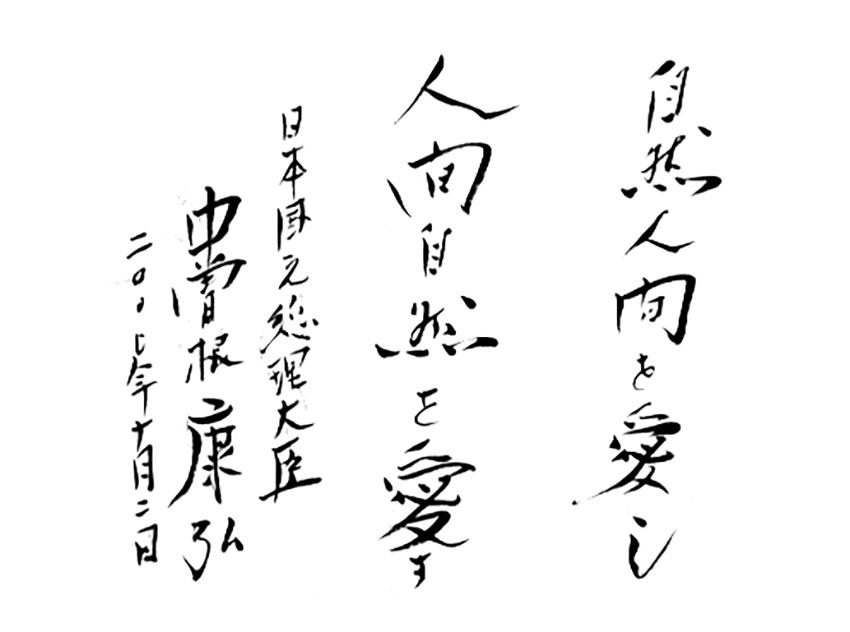 自然人间を愛し
人间自然を愛す
日本国元総理大臣
中曽根康弘
二〇〇七年十月二日